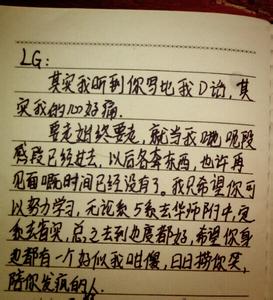 LG:
其实我听到你写比我D话,其
实我的心好痛.
要走始终要走,就当我哋呢段
感段已经过去,以后各奔东西,也许再
见面嘅时间已经没有了。我只希望你可
以努力学习,无论系5系去华师附中,定
系去省实,总之去到边度都好,希望你身
边都有一个好似我咁傻,日日捞你笑,
陪你发疯的人.